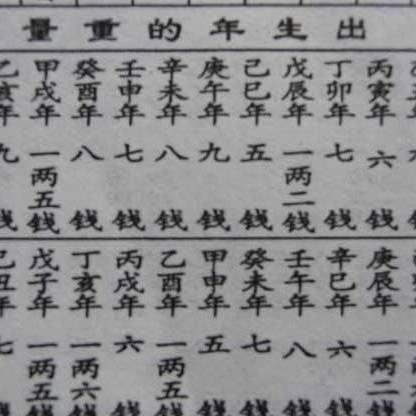 出生年的重量
丙寅年六钱
丁卯年七钱
戊辰年一两二钱
己巳年五钱
庚午年九钱
辛未年八钱
壬申年七钱
癸酉年八钱
甲戌年一两五钱
乙亥年九钱
庚辰年一两二钱
辛巳年六钱
壬午年八钱
癸未年七钱
甲申年五钱
乙酉年一两五钱
丙戌年六钱
丁亥年一两六钱
戊子年一两五钱
己丑年七钱